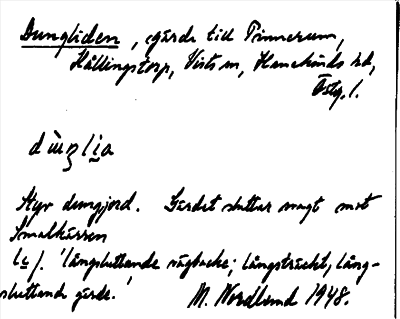 Dungliden, gärde till Tinnerum,
Hällingstorp, Vists sn, Hanekinds hd,
Östg. l.
dùŋlia
Styv dungjord. Gärdet sluttar svagt mot
Smalkärren
'långsluttande vägbacke; långsträckt, lång-
sluttande gärde.' M. Nordlund 1948.